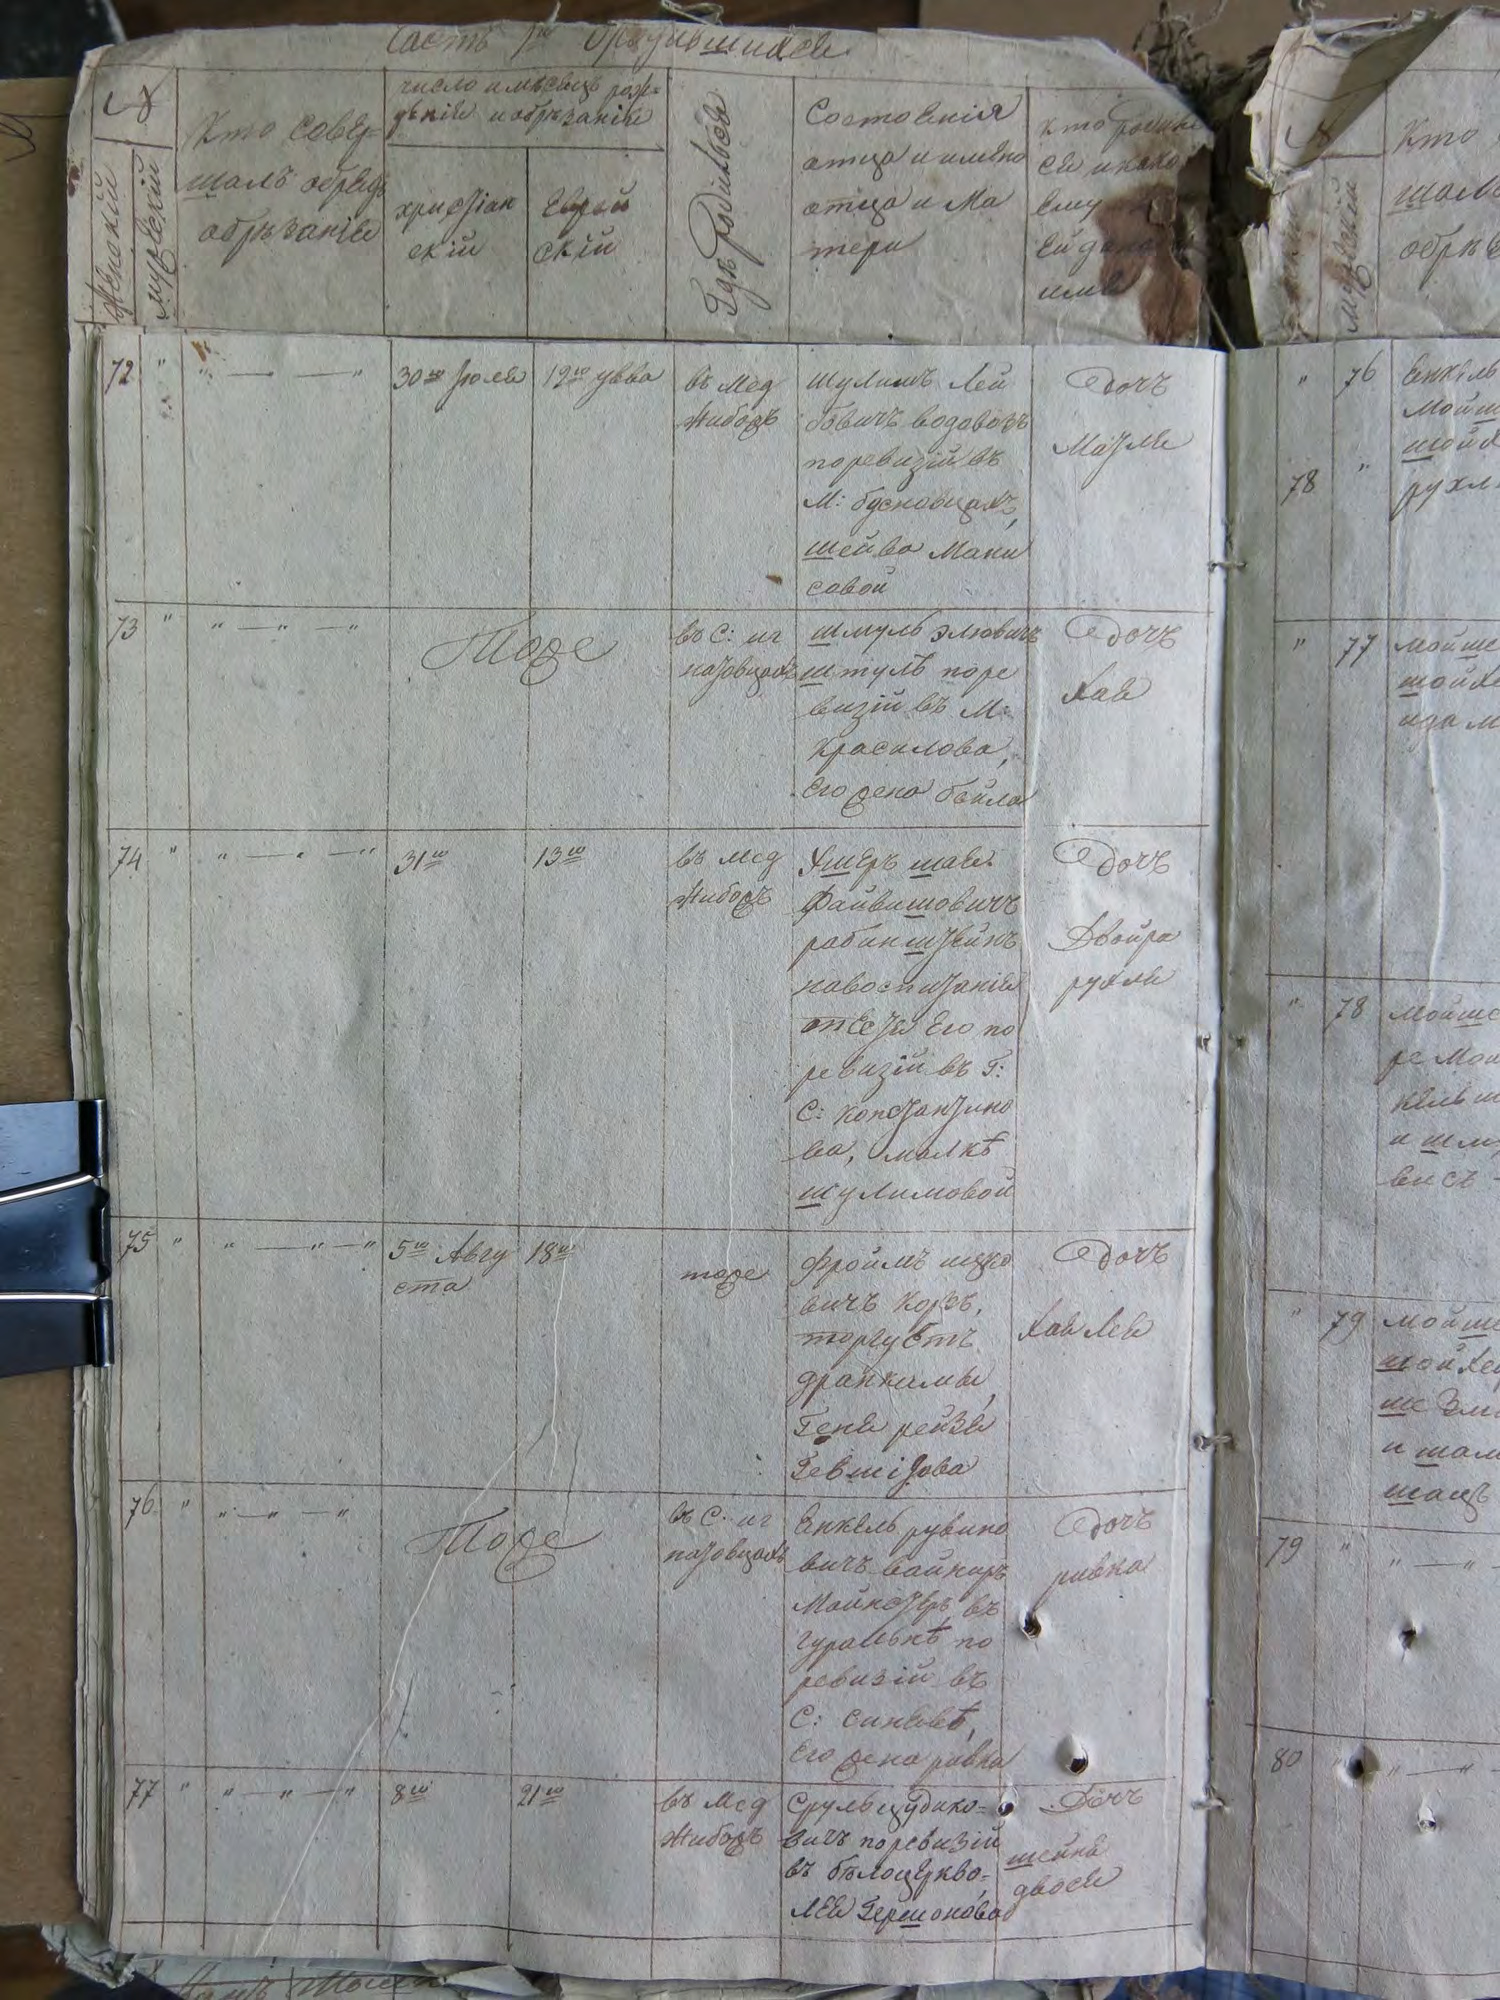 Часть 1ая о родившихся
№
Женский
мужескій
Кто совер=
шалъ обрядъ
обрѣзанія
число и мѣсяцъ рож=
денія и обрѣзанія
христіан
скій
Еврей
скій
Гдѣ родился
Состоянія
отца и имяна
отца и Ма
тери
кто родил
ся и како
ему
ей дано
имя
72 " " — " — "
30го Іюля
12го увва
въ Мед
жибожѣ
Шулимъ Лей
бовичъ водовозъ
по ревизіи въ
М:
Шейва Мани
совой
Дочь
Матля
73 " " — " — "
Тоже
въ С: иг
натовцахъ
Шмуль Элювичъ
Штуль по ре
визіи въ М:
Красилова,
его жена бейла
Дочь
Хая
74 " " — " — "
31го
13го
въ Мед
жибожѣ
Ушеръ шая
Файвишовичъ
рабинштейнъ
на воспитаніи
тестя его по
ревизіи въ Г:
С: Константино
ва, малкѣ
шулимовой
Дочь
Двойра
рухля
75 " " — " — "
5го Авгу
ста
18го
тоже
Фроимъ ицко
вичъ Коръ,
торгуетъ
дранками,
Геня рейзя
Дочь
Хая Лея
76 " " — " — "
Тоже
въ С. иг
натовцахъ
Енкель рувино
вичъ вайнеръ
Майнстеръ въ
гуральнѣ по
ревизіи въ
С: синявѣ,
его жена ривка
Дочь
ривка
77 " " — " — "
8го
21го
въ Мед
жибожѣ
Сруль иудико=
вичъ по ревизіи
въ бѣлоцеркво=
Лея Гершонова
Дочь
шейня
двося
№
мужескій
Кто
шалъ
обрѣз
" 76
Енкель
Мойш
шойх
78 "
рухл
" 77
мойше
шойхе
" 78
Мойше
ре Мош
кель
и шм
" 79
мойше
шойхе
ше Зл
и шам
шацъ
79 " " — "
80 " " — "